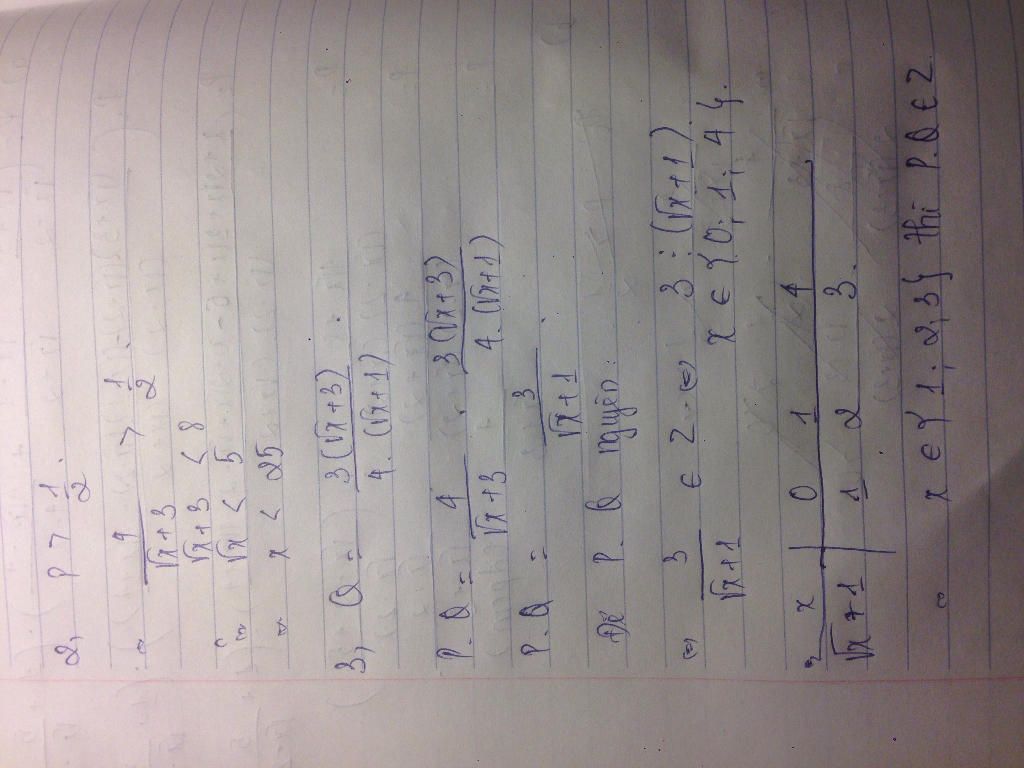 2, P > 1/2.
⇔ 4/(√x+3) > 1/2
√x+3 < 8
⇔ √x < 5
⇔ x < 25
3, Q = 3(√x+3)/4.(√x+1)
P.Q = 4/(√x+3) . 3(√x+3)/4.(√x+1)
P.Q = 3/(√x+1)
Để P.Q nguyên:
⇔ 3/(√x+1) ∈ Z ⇔ 3 ⋮ (√x+1).
x ∈ { 0; 1; 4 }.
x | 0 1 4
√x+1 | 1 2 3.
⇔ x ∈ { 1; 2; 3 } thì P.Q ∈ Z.